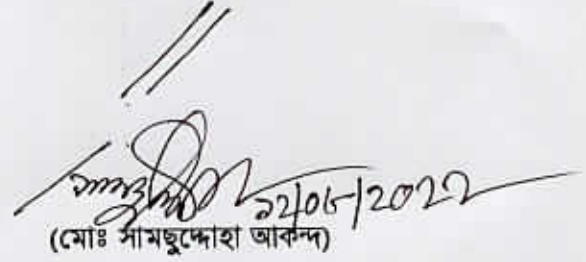 ১২/০৬/2022
(মোঃ সামছুদ্দোহা আকন্দ)